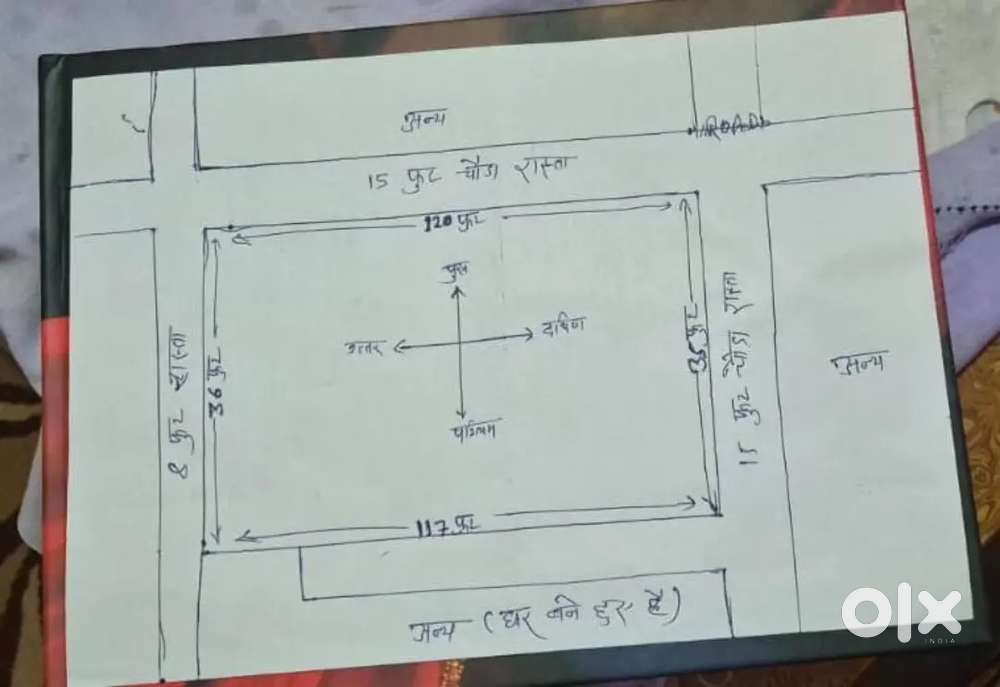 अन्य
15 फुट चौडा रास्ता
120 फुट
पुरब
उत्तर
दक्षिण
पश्चिम
8 फुट रास्ता
36 फुट
36 फुट
15 फुट चौडा रास्ता
अन्य
117 फुट
अन्य (घर बने हुए है)
olx
INDIA